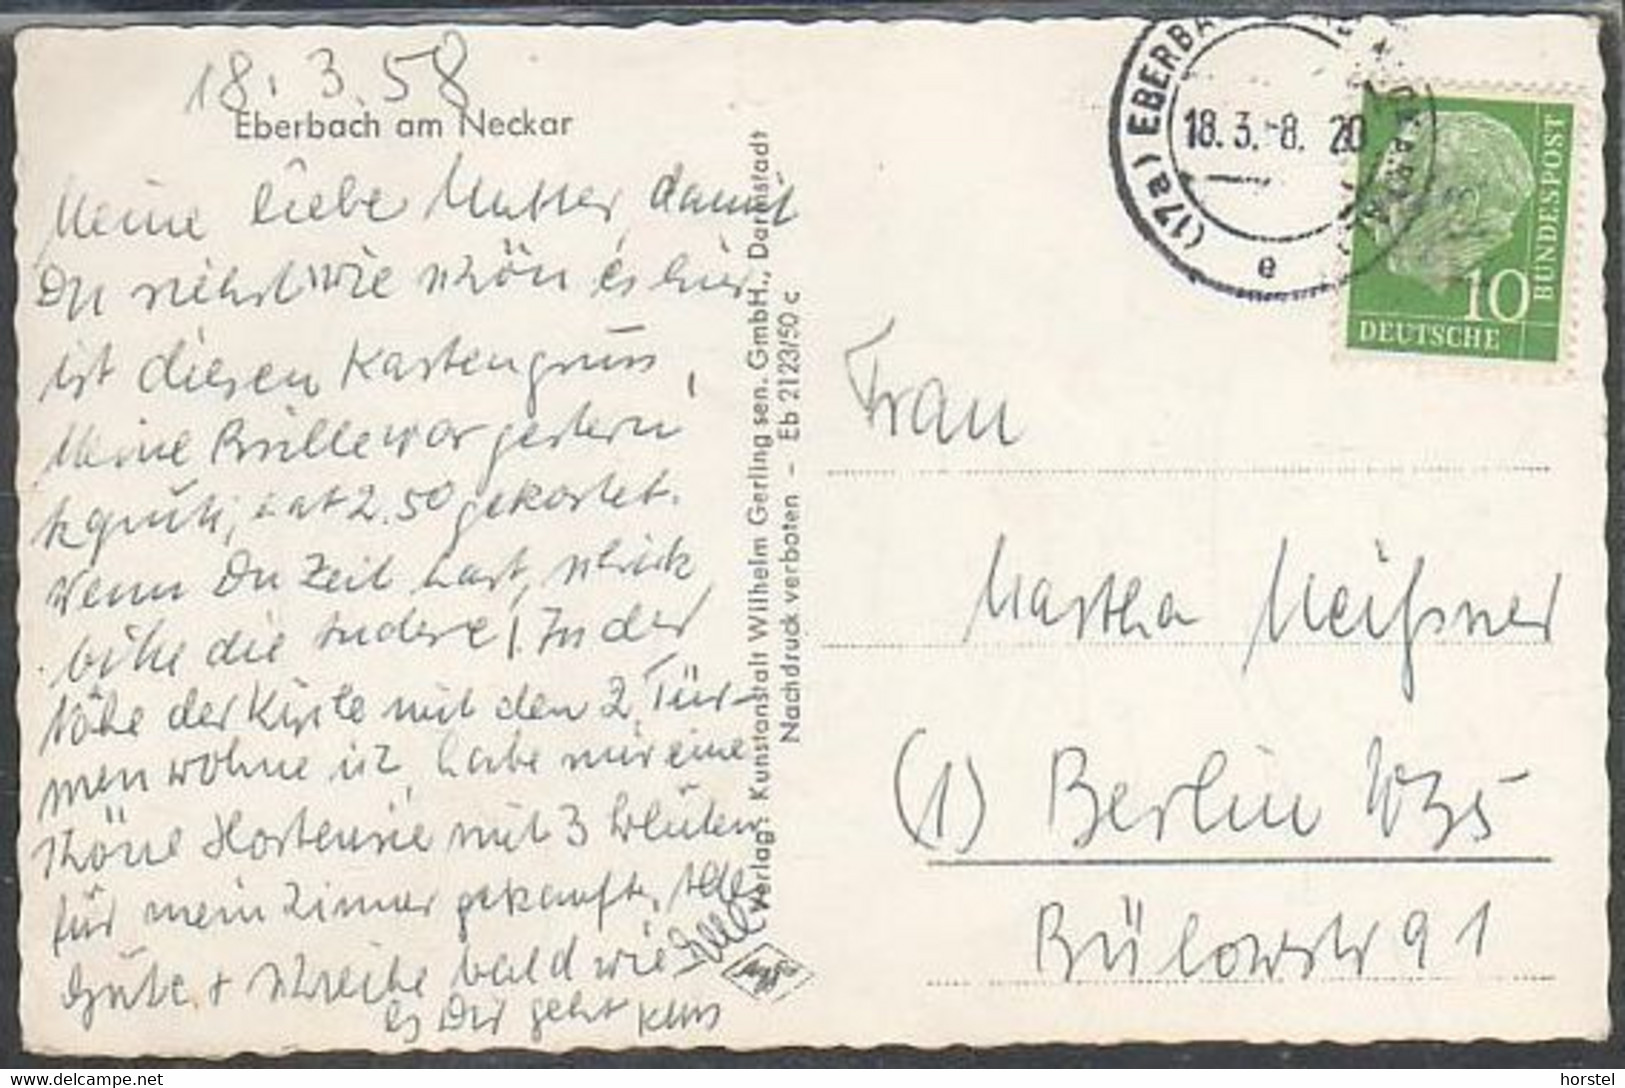 18.3.58
Eberbach am Neckar
Meine liebe Mutter, damit
Du siehst wie schön es hier
ist diesen Kartengruss,
Meine Brille war gestern
hat 2.50 gekostet.
Wenn Du Zeit hast, schick
bitte die andere! In der
Nähe der Kirche mit den 2 Tür-
men wohne ich, habe mir eine
schöne Hortensie mit 3 Blüten
für mein Zimmer gekauft, Alles
Gute + schreibe bald wie
es Dir geht Kuss
Verlag: Kunstanstalt Wilhelm Gerling sen. GmbH., Darmstadt
Nachdruck verboten – Eb 2123/50 c
Agfa
(17a) EBERBACH
18.3.-8. 20
e
10
DEUTSCHE
BUNDESPOST
Frau
Martha Meißner
(1) Berlin W35
Bülowstr 91
horstel
www.delcampe.net